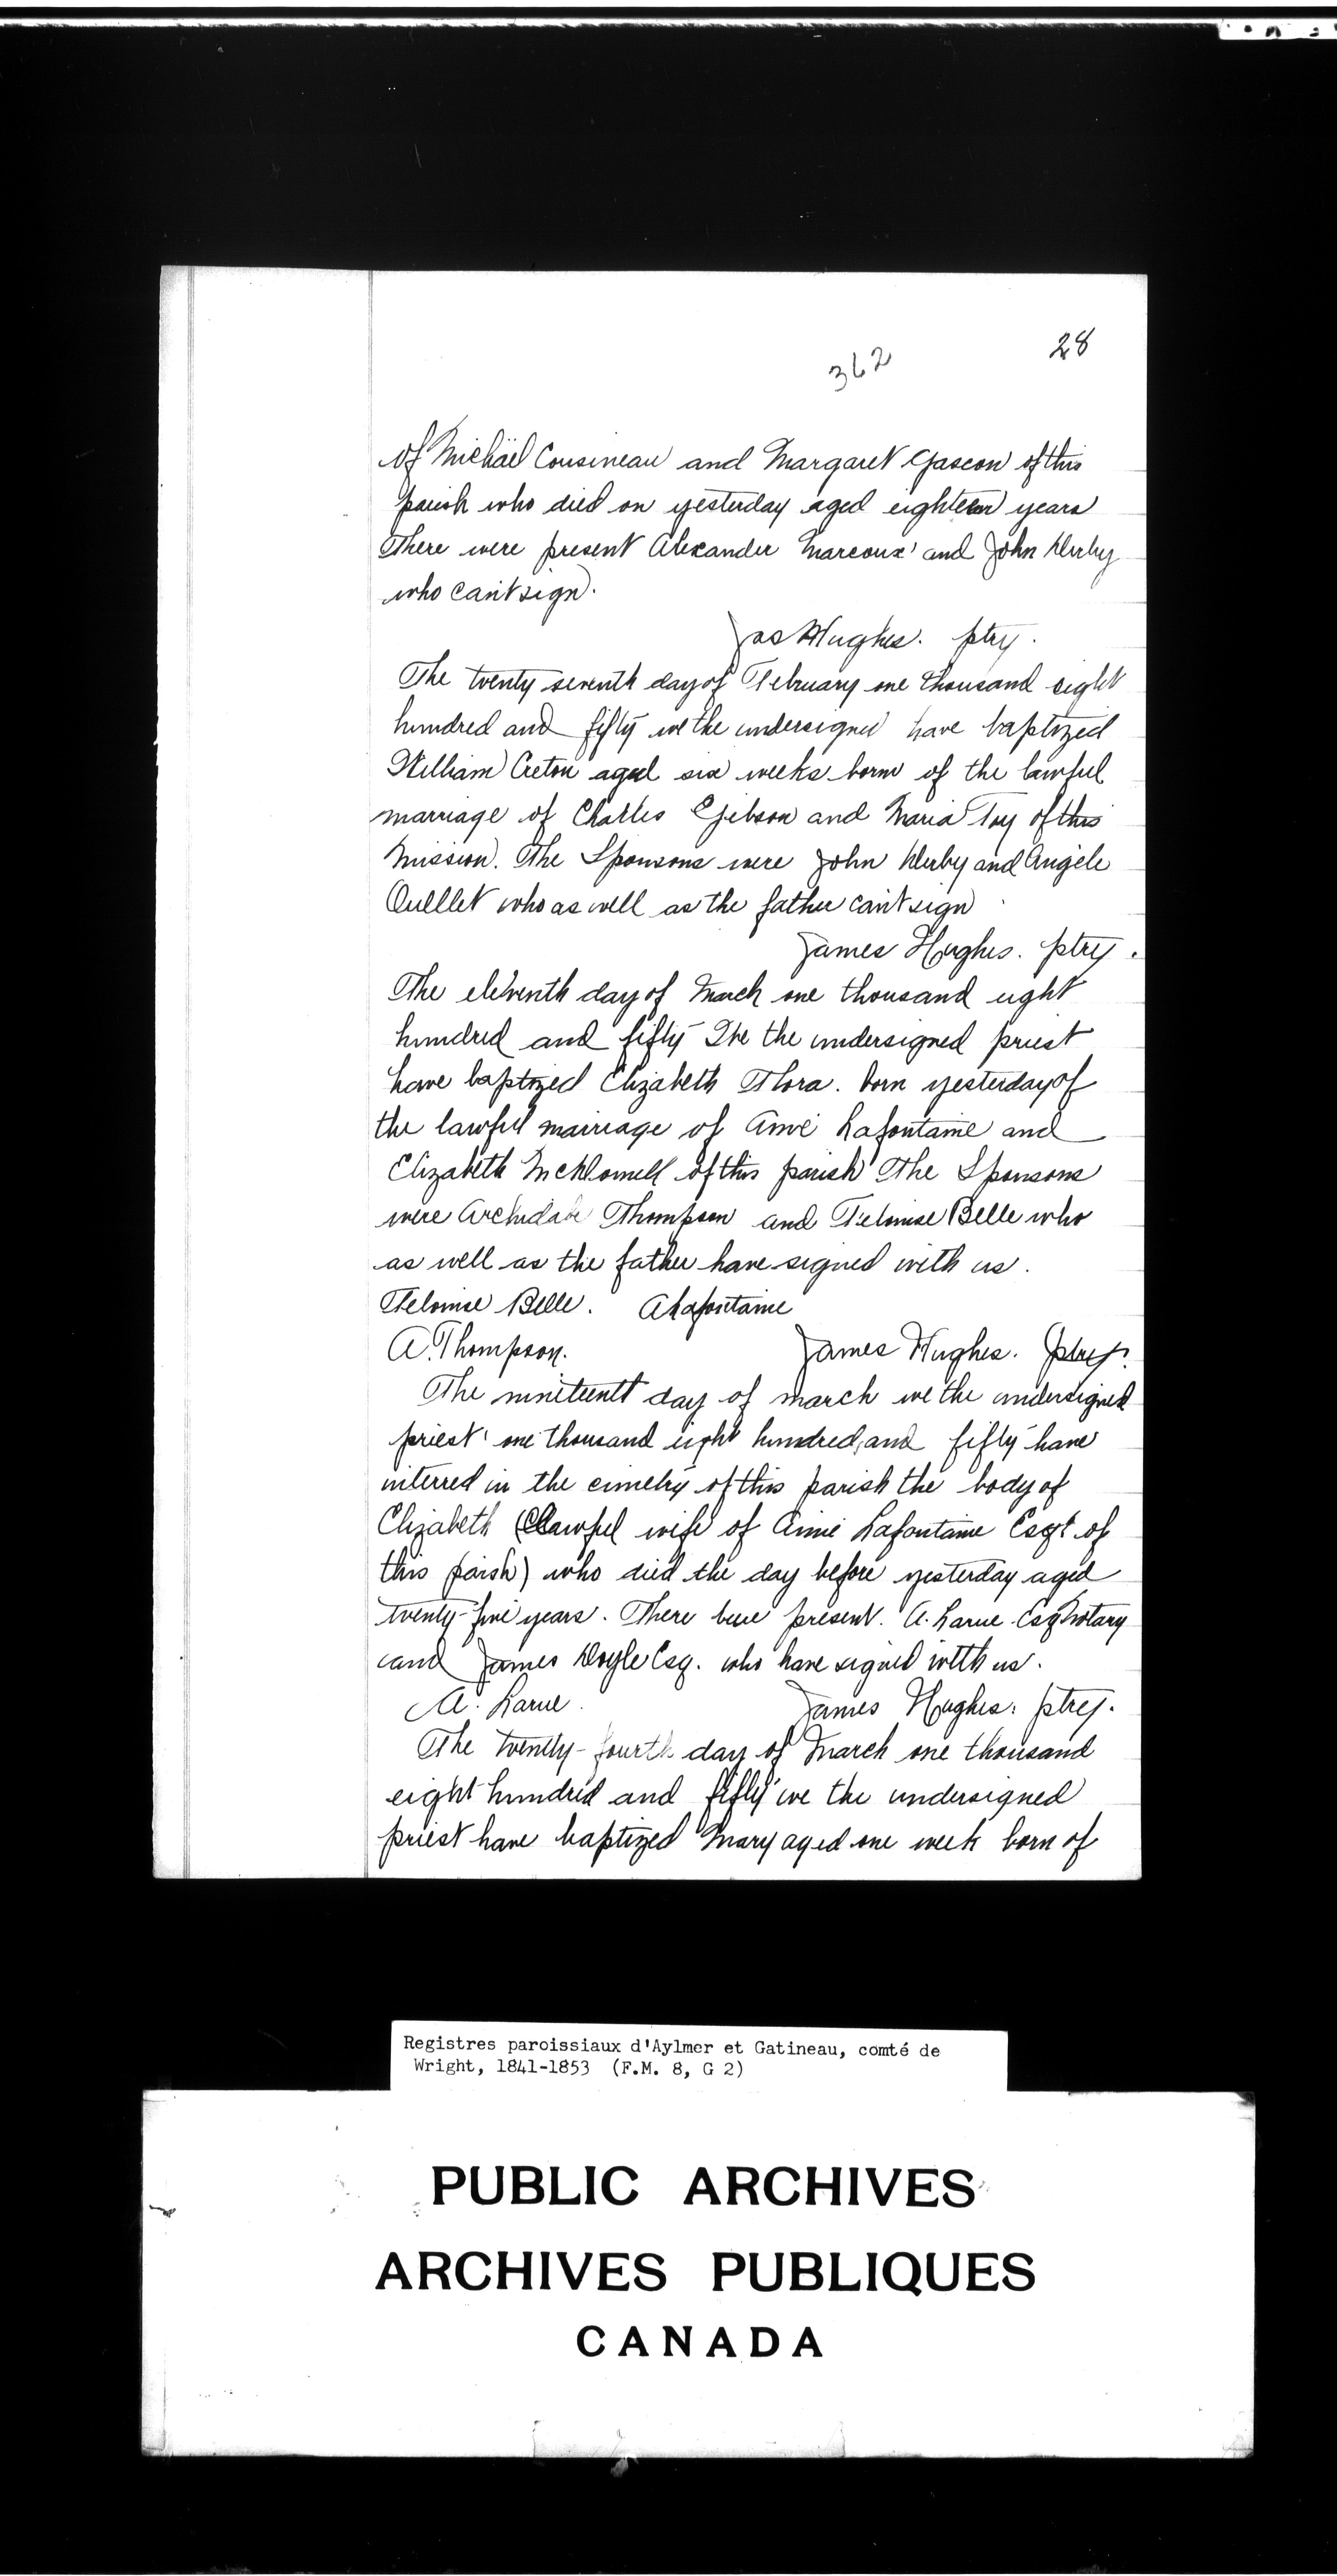 28
362
of Michäel Cousineau and Margaret Gascon of this
parish who died on yesterday aged eighteen years
There were present Alexander Marcoux and John Kirby
who can't sign.
Jas Hughes. ptry.
The twenty seventh day of February one thousand eight
hundred and fifty we the undersigned have baptized
William Creton aged six weeks born of the lawful
marriage of Charles Gibson and Maria Toy of this
Mission. The Sponsons were John Kirby and Angèle
Ouellet who as well as the father can't sign
James Hughes. ptry.
The eleventh day of March one thousand eight
hundred and fifty We the undersigned priest
have baptized Elizabeth Flora. born yesterday of
the lawful marriage of Aimé Lafontaine and
Elizabeth McDonell of this parish The Sponsons
were Thompson and Felonise Belle who
as well as the father have signed with us.
Felonise Belle. ALafontaine
A. Thompson. James Hughes. ptry.
The nineteenth day of march we the undersigned
priest one thousand eight hundred and fifty have
interred in the cimetry of this parish the body of
Elizabeth (lawful wife of Aimé Lafontaine Esqt of
this parish) who died the day before yesterday aged
twenty-five years. There were present. A. Larue Esq Notary
and James Doyle Esq. who have signed with us.
A. Larue. James Hughes. ptry.
The twenty-fourth day of March one thousand
eight hundred and fifty we the undersigned
priest have baptized Mary aged one week born of
Registres paroissiaux d'Aylmer et Gatineau, comté de
Wright, 1841-1853 (F.M. 8, G 2)
PUBLIC ARCHIVES
ARCHIVES PUBLIQUES
CANADA